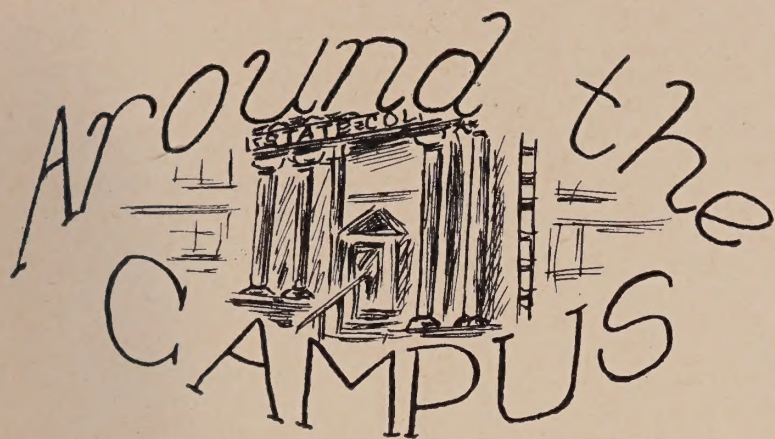 Around the
STATE COLL
CAMPUS